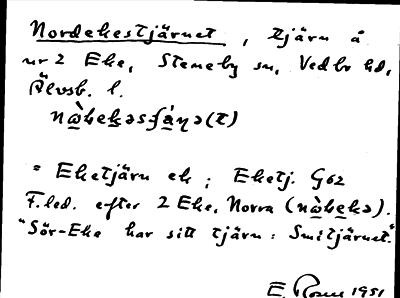 Nordekestjärnet, tjärn å
nr 2 Eke, Steneby sn, Vedbo hd,
Älvsb. l.
nὼbekəsʃánə(t)
= Eketjärn ek; Eketj. G62
F.led. efter 2 Eke, Norra (nὼbekə).
"Sör-Eke har sitt tjärn: Smitjärnet."
E. Rosen 1951